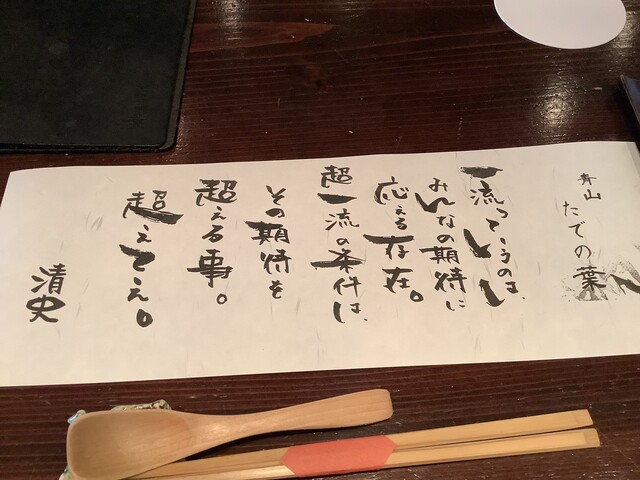 青山
たでの葉へ
一流っていうのは、
みんなの期待に
応える存在。
超一流の条件は、
その期待を
超える事。
超えてえ。
清史